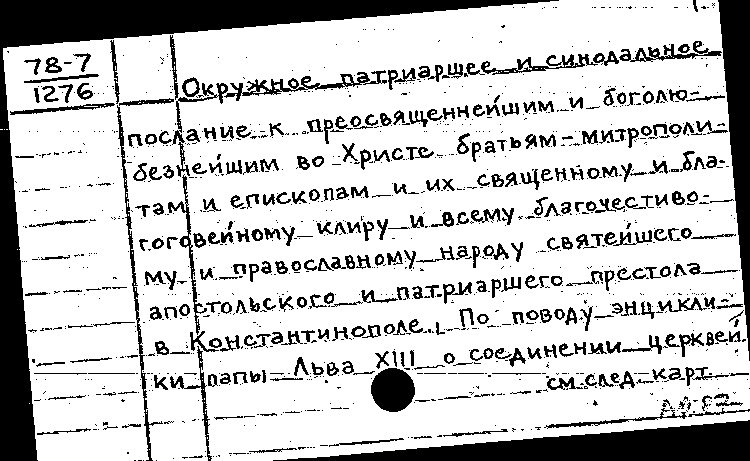 78-7
1276
Окружное патриаршее и синодальное
послание к преосвященнейшим и боголю-
безнейшим во Христе братьям-митрополи-
там и епископам и их священному и бла-
гоговейному клиру и всему благочестиво-
му и православному народу святейшего
апостольского и патриаршего престола
в Константинополе. По поводу энцикли-
ки папы Льва XIII о соединении церквей
см след. карт